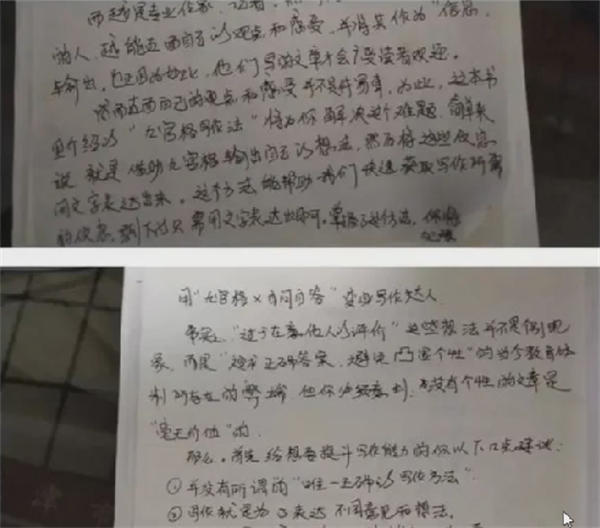 而越是专业作家、记者，
的人，越能直面自己的观点和感受，并将其作为“信息”
与输出，也正因为如此，他们写的文章才会广受读者欢迎。
然而直面自己的观点和感受并不是件易事，为此，这本书
里介绍的“九宫格写作法”将为你解决这个难题。简单来
说，就是借助九宫格输出自己的想法，然后将这些信息
用文字表达出来。这个方法能帮助我们快速获取写作所需
的信息，剩下的只需用文字表达出即可。掌握了这个方法，你将
用“九宫格×自问自答”变身写作达人
事实上，“过于在意他人的评价”这些想法并不是个别现
象，而是“追求正确答案，避免凸显个性”的当今教育体
制所存在的弊端。但你必须意识到，没有个性的文章是
“毫无价值”的。
那么，首先给想要提升写作能力的你以下口点建议：
①并没有所谓的“唯一正确的写作方法”
②写作就是为了表达不同意见和想法。